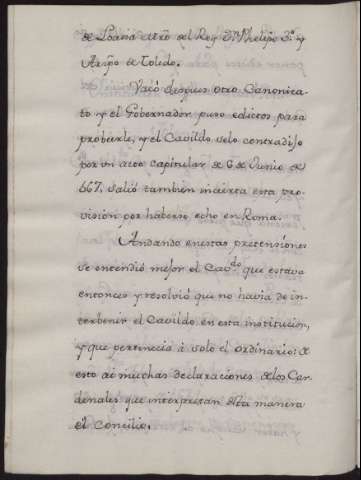 de Loaisa mtrō. del Rey Dⁿ Phelipe 3º y
Arzpō de Toledo.
Vacó despues otro Canonica-
to y el Gobernador puso edictos para
probeerle, y el Cavildo se lo contradijo
por un acto capitular de 6 de Junio de
667, salió tambien incierta esta pro-
vision por haberse echo en Roma.
Andando en estas pretensiones
se entendió mejor el Cavdo que estava
entonces y resolvió que no havia de in-
terbenir el Cavildo en esta institucion,
y que perteneció à solo el ordinario: de
esto ai muchas declaraciones de los Car-
denales que interpretan esta manera
el Concilio.